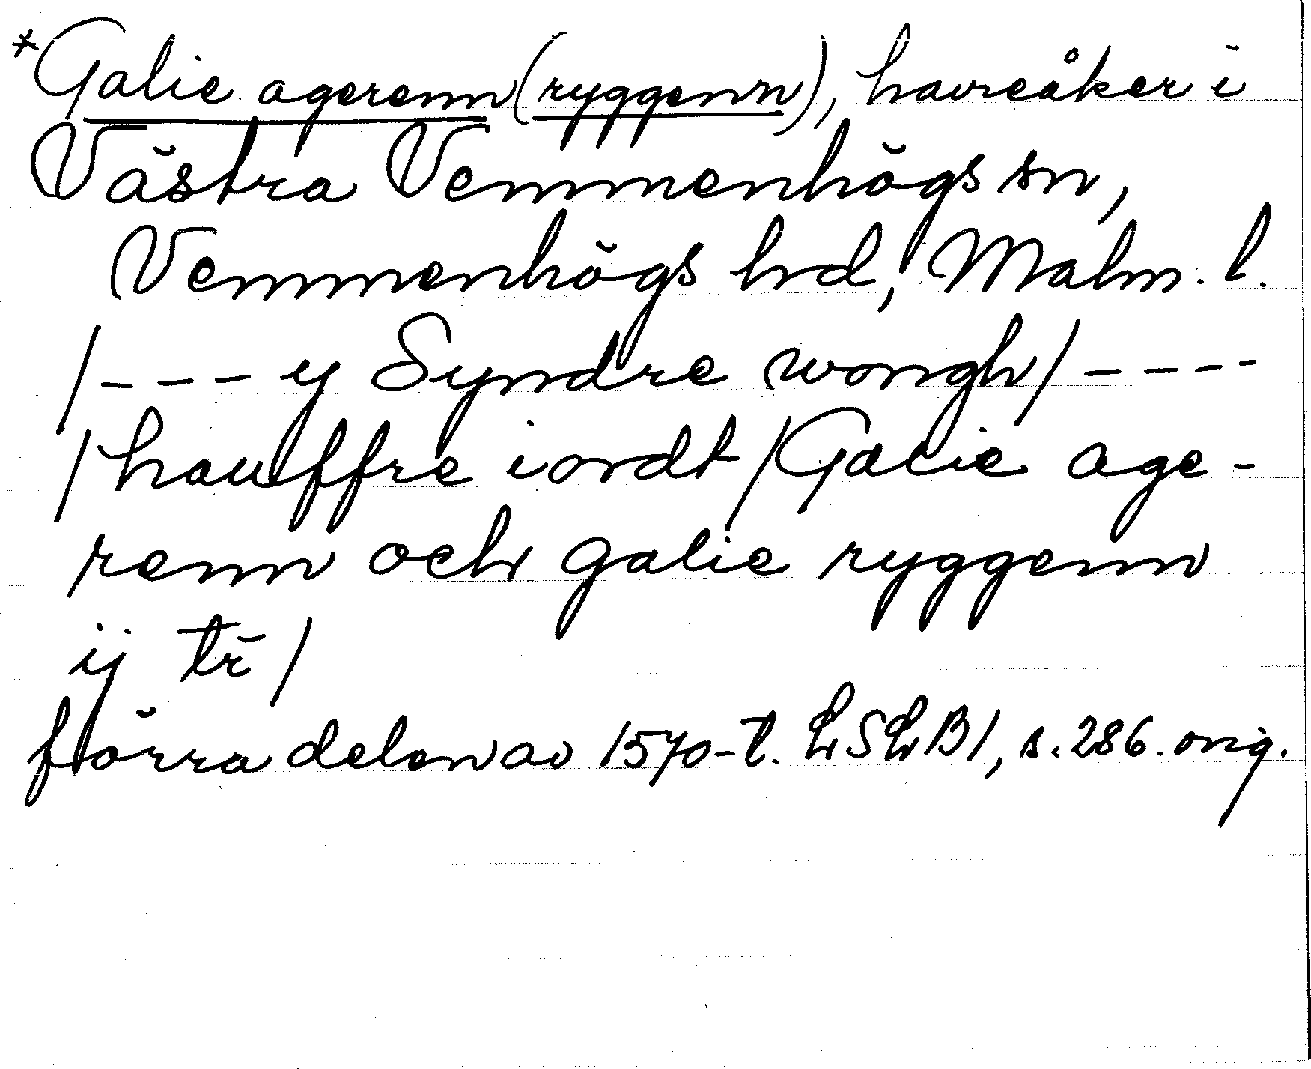 *Galie agerenn (ryggenn), havreåker i
Västra Vemmenhögs sn,
Vemmenhögs hrd, Malm. l.
/- - - y Syndre wongh/ - - - -
/hauffre iordt/Galie age-
renn och galie ryggenn
ij tr̄/
förra delen av 1570-t. LSLB1, s. 286. orig.